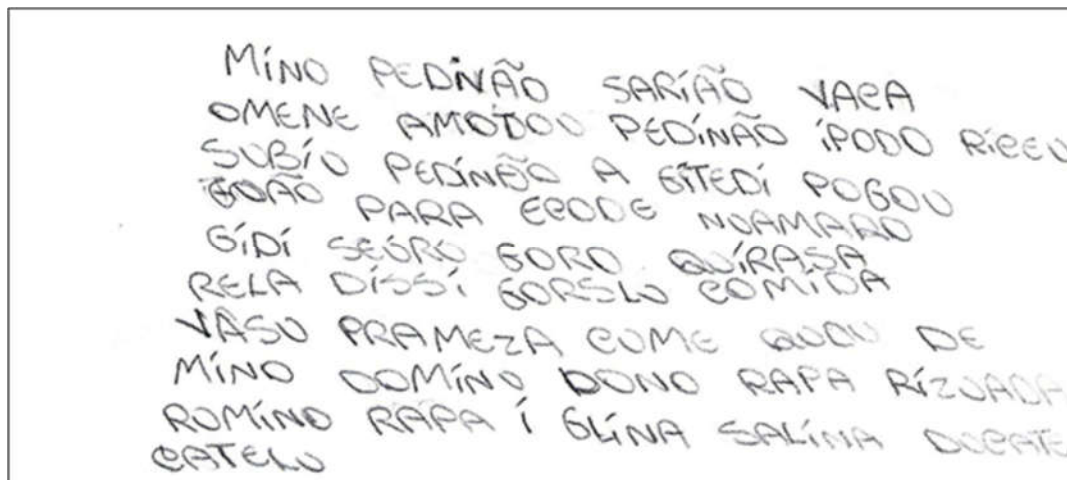 MÍNO PEDINÃO SARÍÃO VACA
OMENE AMOTOOU PEDÍNÃO ÍPODO RÍCEU
SUBÍU PEDÍNÃO A GÍTEDÍ POGOU
GOÃO PARA ECODE NUAMARO
GÍDÍ SEURO GORO QUÍRASA
RELA DÍSSÍ GORSLU COMÍDA
VASU PRAMEZA CUME QUDU DE
MÍNO DOMÍNO DONO RAPA RÍZUADA
ROMÍNO RAPA Í GLÍNA SALÍNA DOCATE
CATELU